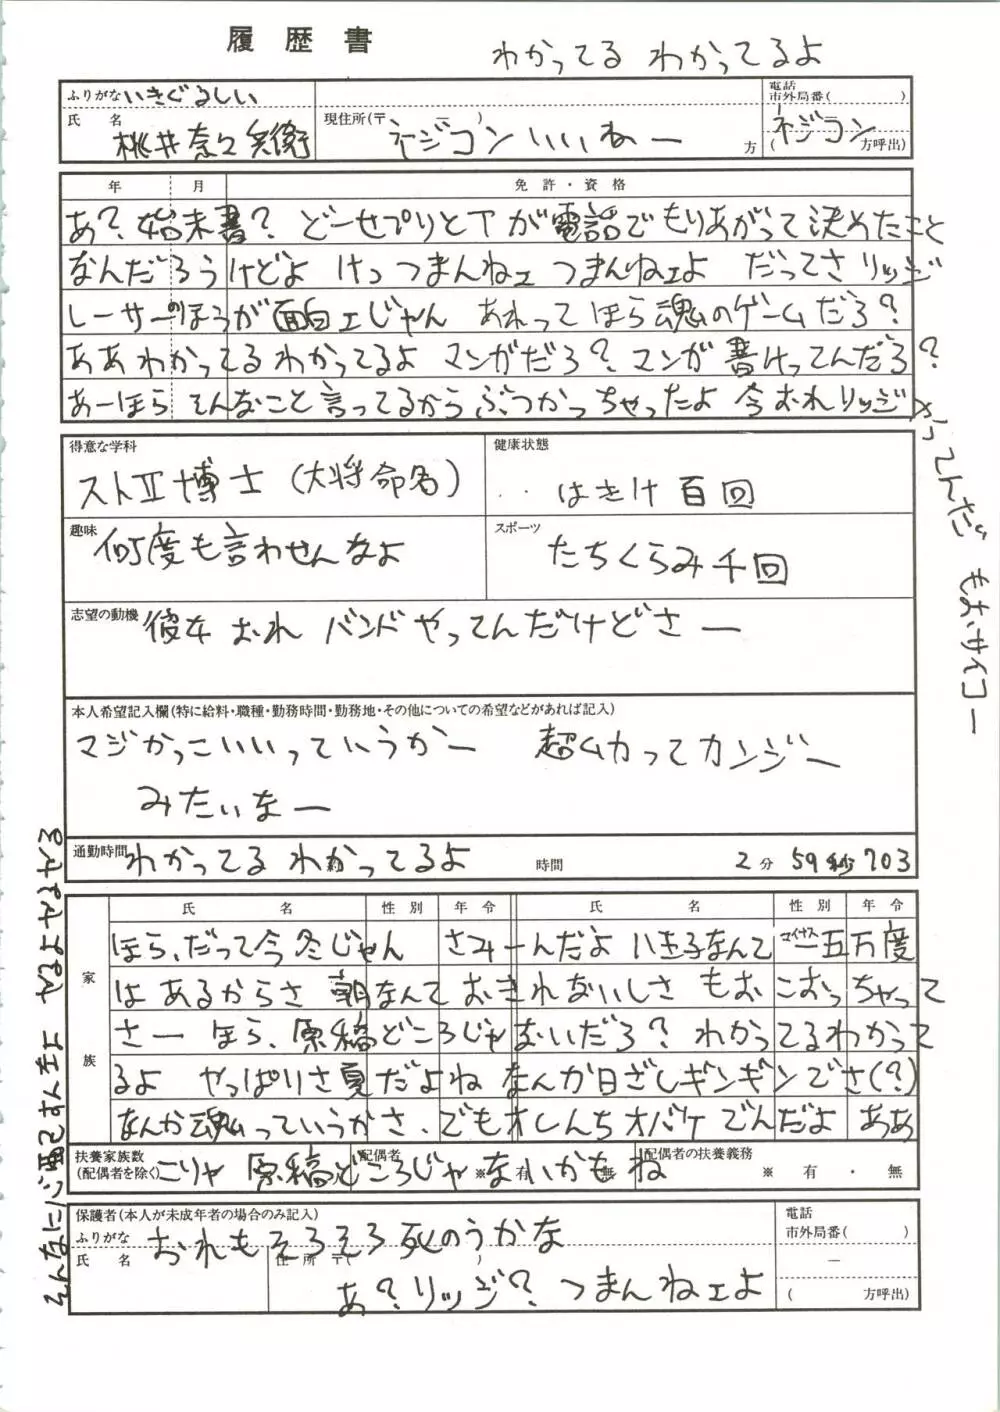 履歴書
わかってる わかってるよ
ふりがな いきぐるしい
氏 名 桃井奈々兵衛
現住所(〒 ― ) ネジコン いいねー 方
電話
市外局番( )
ネジコン
( 方呼出)
年 月 免許・資格
あ?始末書? どーせプリとTが電話でもりあがって決めたこと
なんだろうけどよ けっつまんねェ つまんねェよ だってさ リッジ
レーサーのほうが面白ェじゃん あれってほら魂のゲームだろ?
ああわかってるわかってるよ マンガだろ?マンガ書けってんだろ?
あーほら そんなこと言ってるからぶつかっちゃったよ 今おれリッジ
やってんだ もおサイコー
得意な学科
ストⅡ博士(大将命名)
健康状態
‥はきけ百回
趣味 何度も言わせんなよ
スポーツ
たちくらみ千回
志望の動機 彼女 おれ バンドやってんだけどさー
本人希望記入欄(特に給料・職種・勤務時間・勤務地・その他についての希望などがあれば記入)
マジかっこいいっていうかー 超ムカってカンジー
みたいなー
通勤時間 わかってる わかってるよ 約 時間 2分 59秒703
家族
氏 名 性別 年令 氏 名 性別 年令
ほら、だって今冬じゃん さみーんだよ 八王子なんて マイナス一五万度
はあるからさ 朝なんておきれないしさ もおこおっちゃって
さー ほら、原稿どころじゃないだろ? わかってるわかって
るよ やっぱりさ夏だよね なんか日ざしギンギンでさ(?)
なんか魂っていうかさ、でもオレんちオバケでんだよ ああ
扶養家族数
(配偶者を除く)
配偶者
※ 有・無
配偶者の扶養義務
※ 有・無
こりゃ原稿どころじゃないかもね
保護者(本人が未成年者の場合のみ記入)
ふりがな おれもそろそろ死のうかな
氏 名 住所 〒( )
あ?リッジ? つまんねェよ
電話
市外局番( )
―
( 方呼出)
そんなに心配すんなよ やるよやるやる